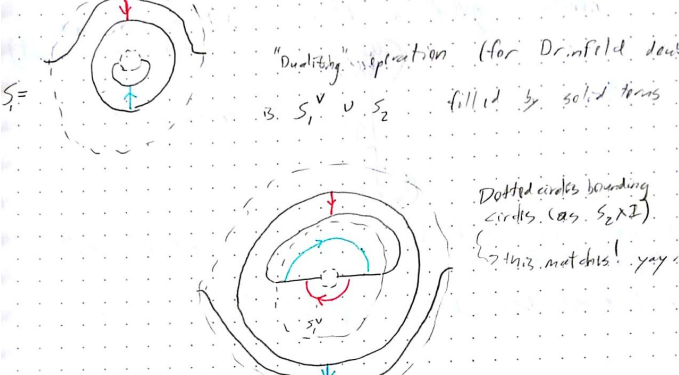 "Dualizing" operation (for Drinfeld
S₁=
is S₁ᵛ ∪ S₂ filled by solid torus
Dotted circles bounding
circles (as S₂×I).
↳ this matches! yay
S₁ᵛ